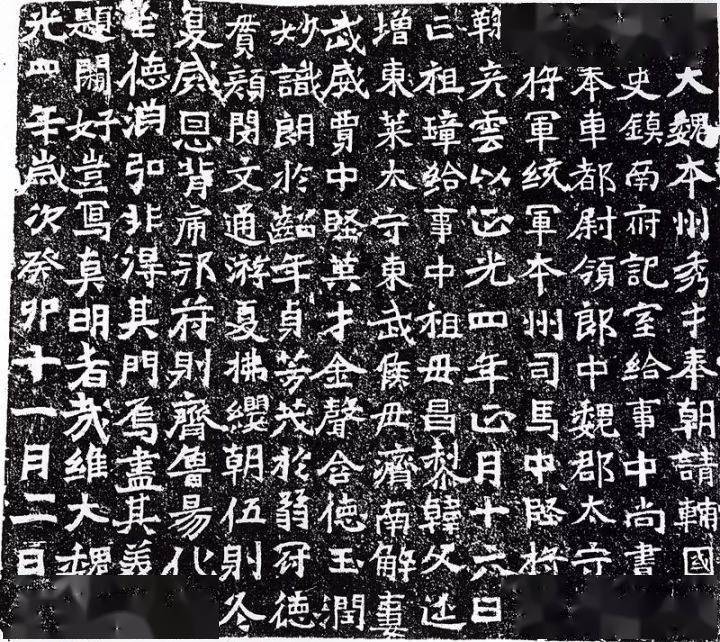 大魏本州秀才奉朝請輔國
史鎮南府記室給事中尚書
奉車都尉領郎中魏郡太守
將軍統軍本州司馬中堅將
鞠彥雲以正光四年正月十六日
亡祖璋給事中祖母昌黎韓父
增東萊太守東武侯母濟南解妻
武威賈中堅英才金聲含德玉潤
妙識朗於齠年貞芳茂於弱冠德
貫顏閔文通游夏拂纓朝伍則冬
夏威恩邦苻則齊魯易化
至德淵弘非淂其門焉盡其美
題好豈寫真明者哉維大魏
光四年歲次癸卯十一月二日